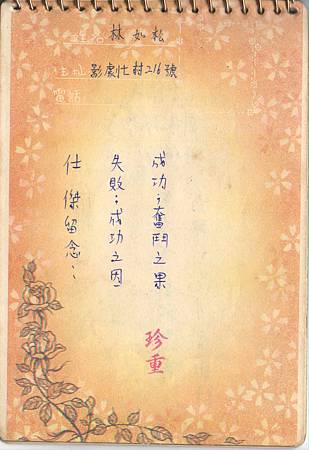 姓名 林如松
住址 影劇七村216號
電話
成功;奮鬥之果
珍重
失敗;成功之因
仕傑留念: